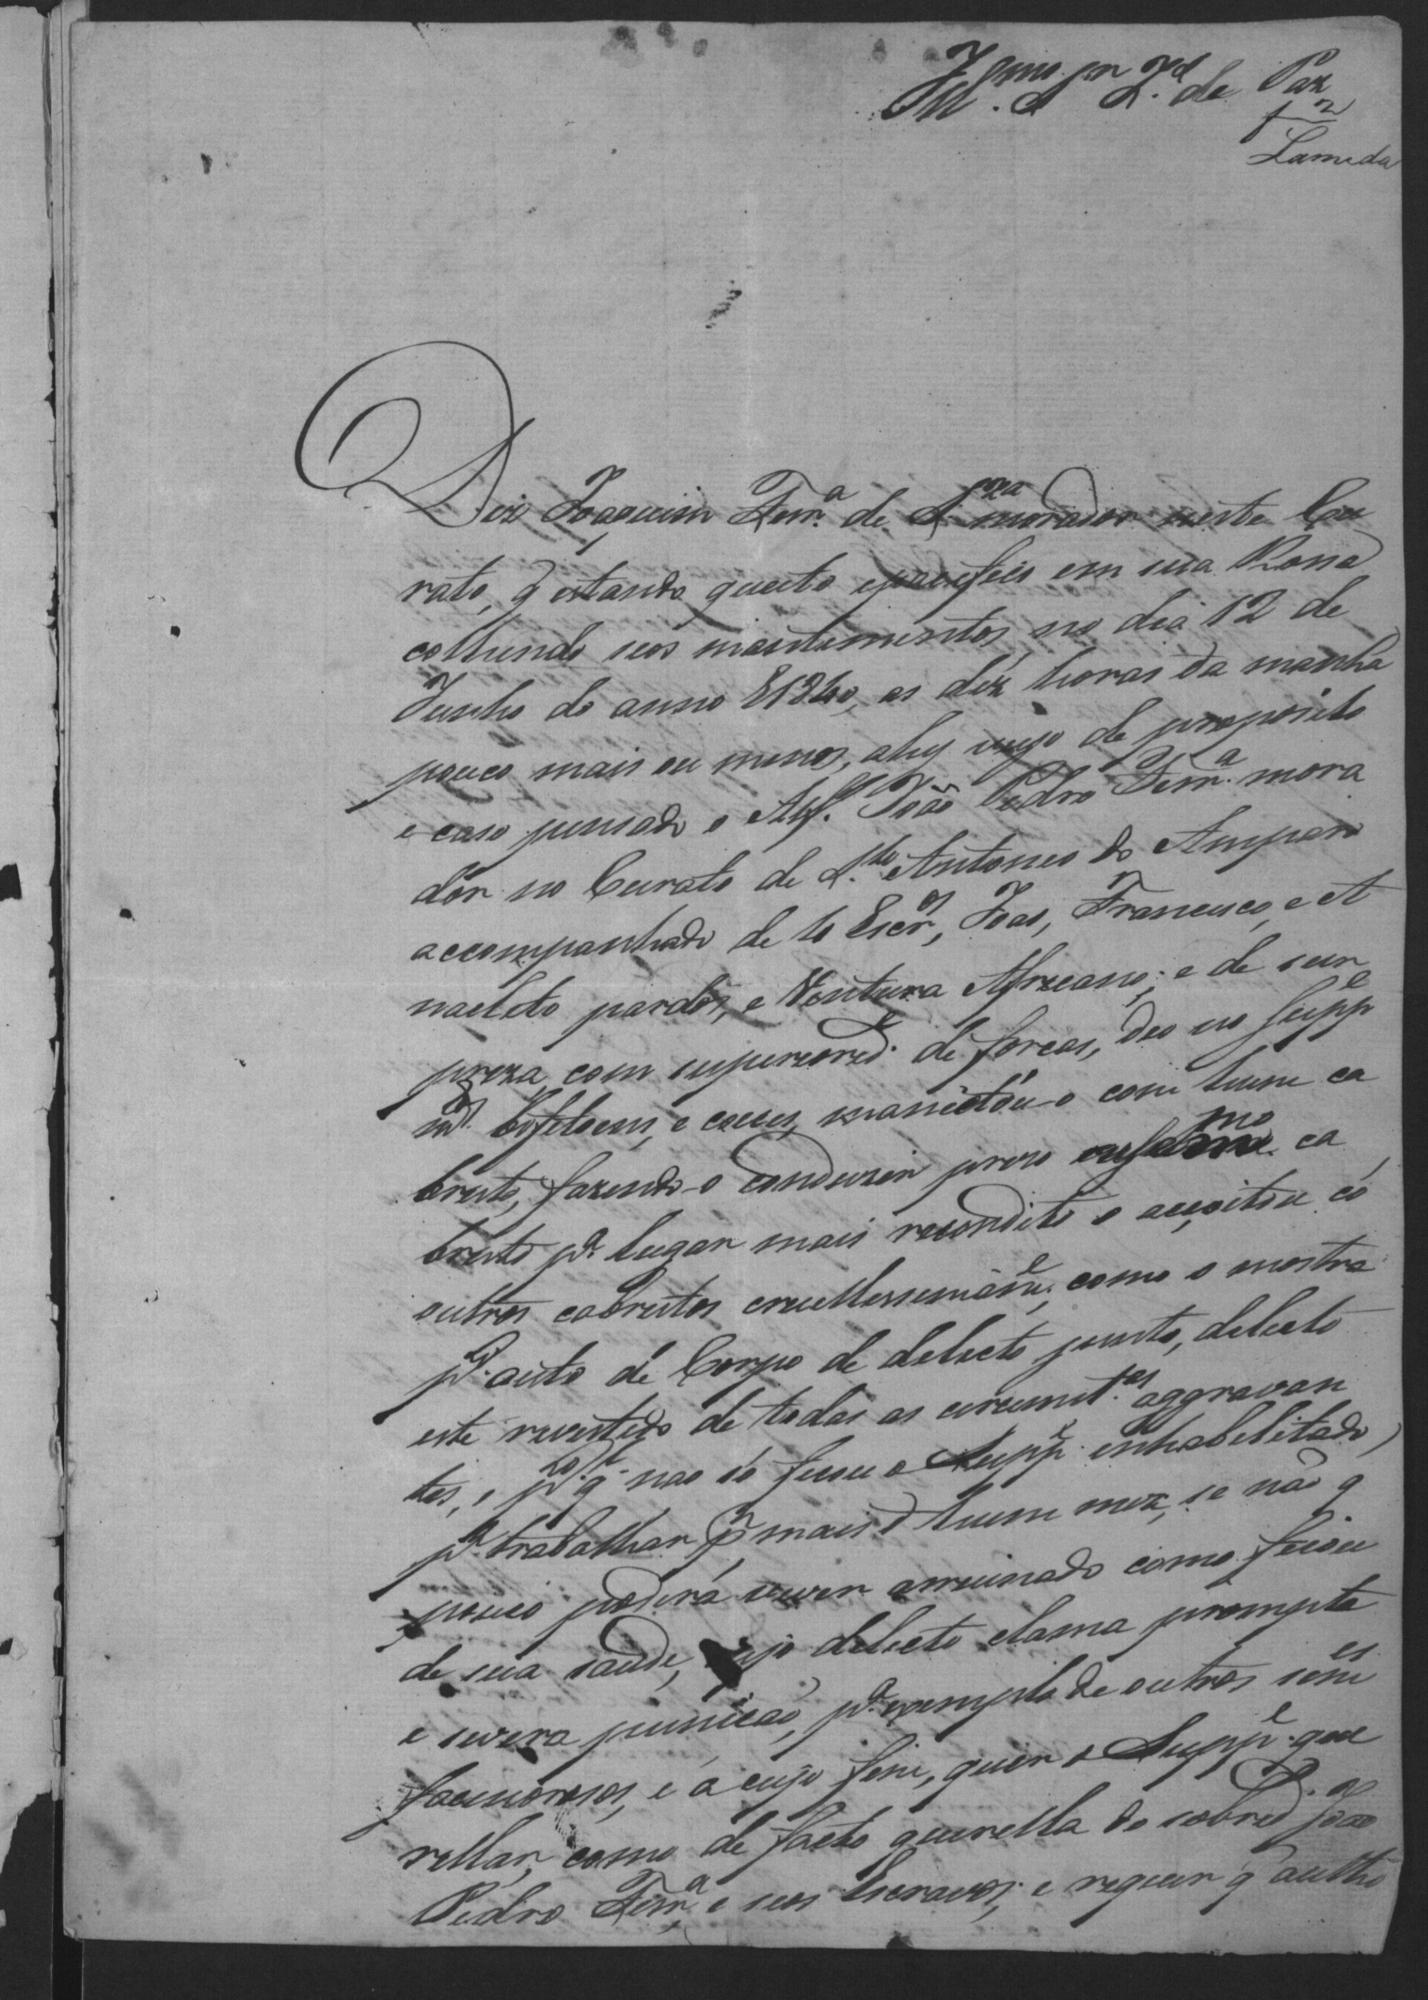 Ill.mo Sn.r J.z de Paz
f 2
Lameda
Diz Joaquim Ferr.a de S.za morador neste Cu
rato, q estando quieto e passifico em sua Rossa
colhendo seos mantimentos, no dia 12 de
Junho do anno 1840, as déz horas da manha
pouco mais ou menos, ahy veyo de proposito
e caso pensado o Alf.s João Pedro Ferr.a mora
dôr no Curato de S.to Antonio do Amparo
accompanhado de 4 Escr.os, Joao, Francisco, e A
nacleto pardos, e Ventura Africano; e de sur
preza, com superiorid.e de forcas, deo no Supp.e
m.tas bofetoens, e couces, maniatou-o com hum ca
bresto, fazendo-o conduzir prezo mo ca
bresto p.a lugar mais recondito o açoitou cõ
outros cabrestos cruellissimam.e, como o mostra
p.lo auto de Corpo de delicto junto, delicto
este revestido de todas as circumst.as aggravan
tes, e p.r q nao só ficou o Supp.e inhabilitado
p.a trabalhar p.r mais d hum mez, se não q
pouco poderá viver arruinado como ficou
de sua saude, cujo delicto clama prompta
e severa punicaó, p.a exemplo de outros sem.es
facinorosos, e á cujo fim, quer o Supp.e que
rellar, como de facto querella do sobred.o Joao
Pedro Ferr.a e seos Escravos; e requer q autho